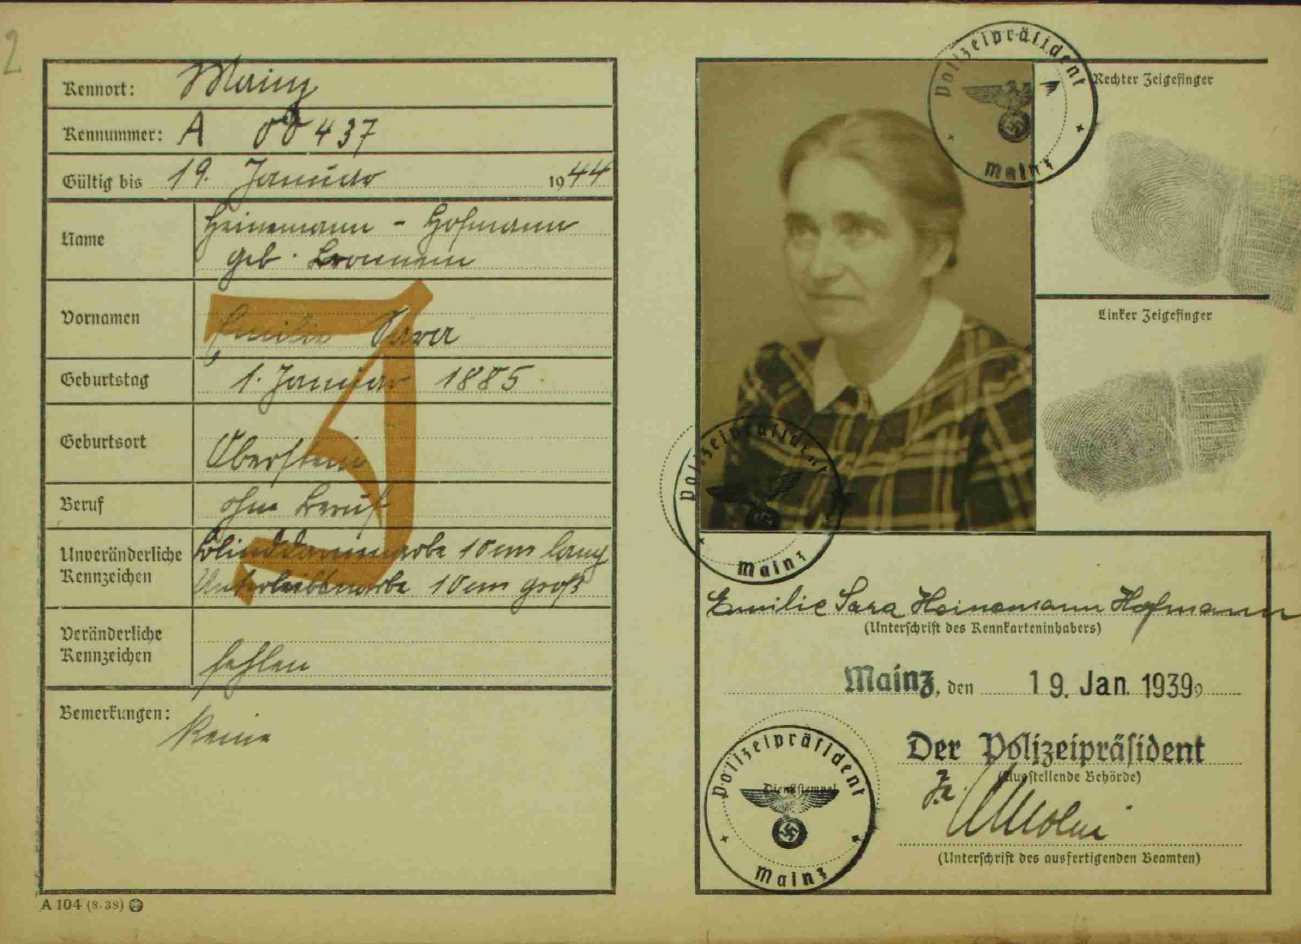 2
Kennort: Mainz
Kennummer: A 00437
Gültig bis 19. Januar 1944
Name Heinemann - Hofmann
geb.
Vornamen Emilie Sara
Geburtstag 1. Januar 1885
Geburtsort Oberstein
Beruf ohne Beruf
Unveränderliche Kennzeichen Blinddarmnarbe 10 cm lang
Unterleibsnarbe 10 cm groß
Veränderliche Kennzeichen fehlen
Bemerkungen: Keine
J
A 104 (8.38)
Polizeipräsident
Mainz
Rechter Zeigefinger
Linker Zeigefinger
Polizeipräsident
Mainz
Emilie Sara Heinemann Hofmann
(Unterschrift des Kennkarteninhabers)
Mainz, den 19. Jan. 1939
Der Polizeipräsident
(Ausstellende Behörde)
(Unterschrift des ausfertigenden Beamten)
Polizeipräsident
Dienststempel
Mainz